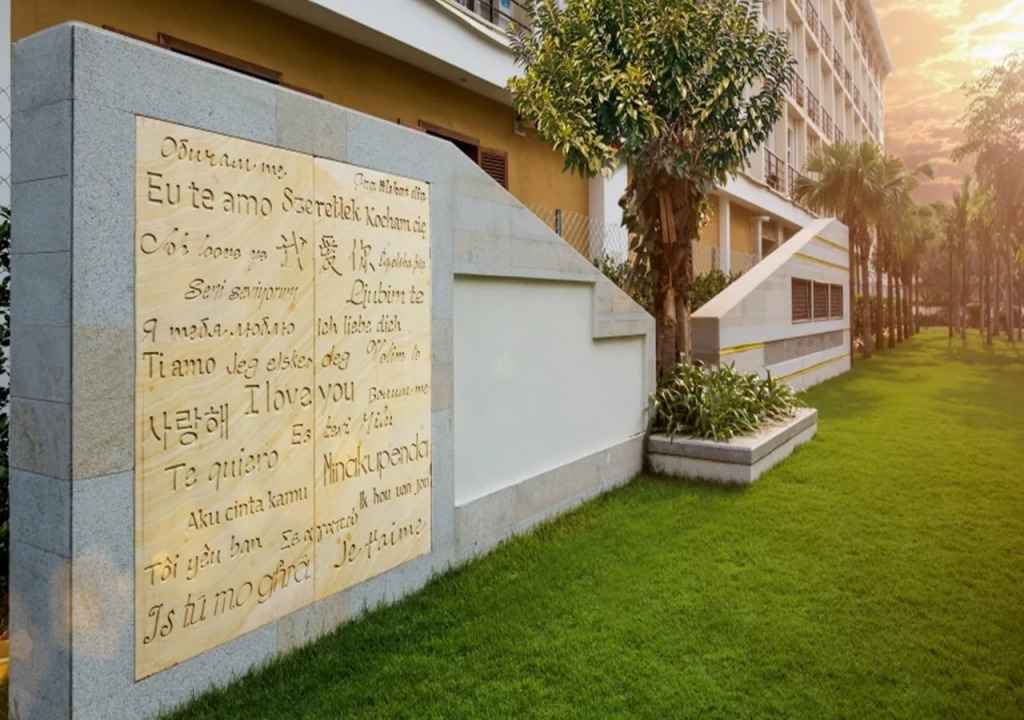 Обичам те
Eu te amo Szeretlek Kocham cię
我 愛 你
Seni seviyorum Ljubim te
Я тебя люблю Ich liebe dich
Ti amo Jeg elsker deg Volim te
I love you
사랑해 Es tevi Milu
Te quiero Ninakupenda
Aku cinta kamu Ik hou van jou
Tôi yêu bạn Σε αγαπώ
Is tú mo ghrá Je t'aime